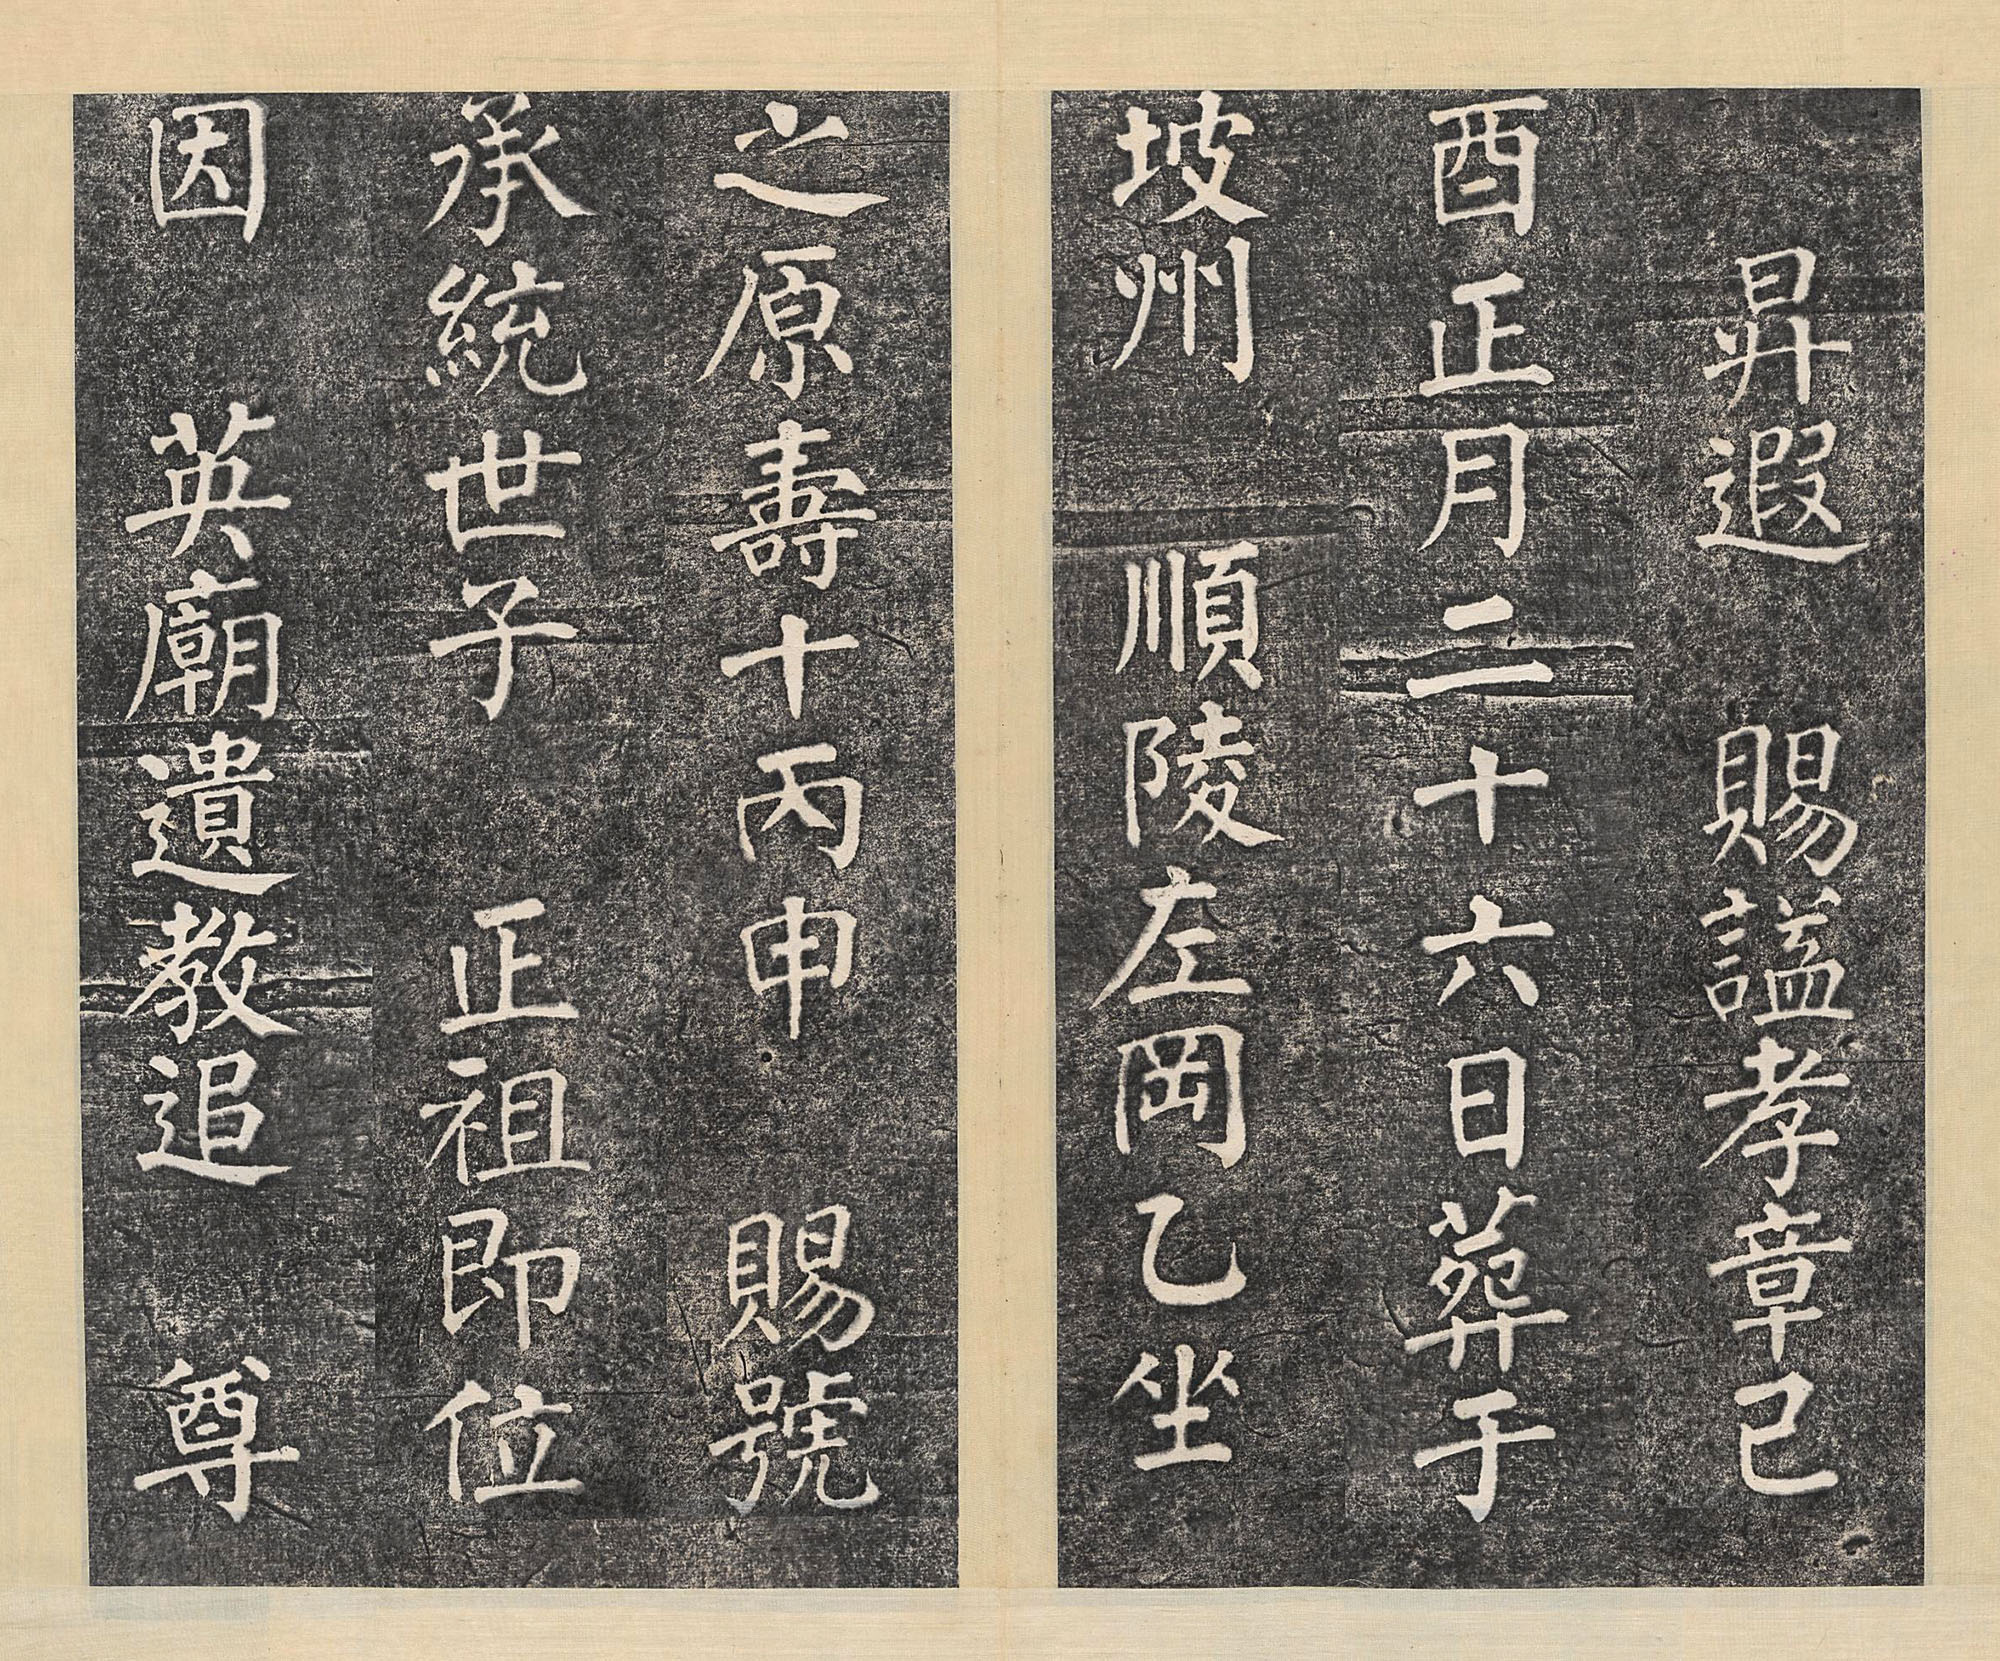 昇遐 賜謚孝章己
酉正月二十六日葬于
坡州 順陵左岡乙坐
之原壽十丙申 賜號
承統世子 正祖即位
因 英廟遺教追 尊